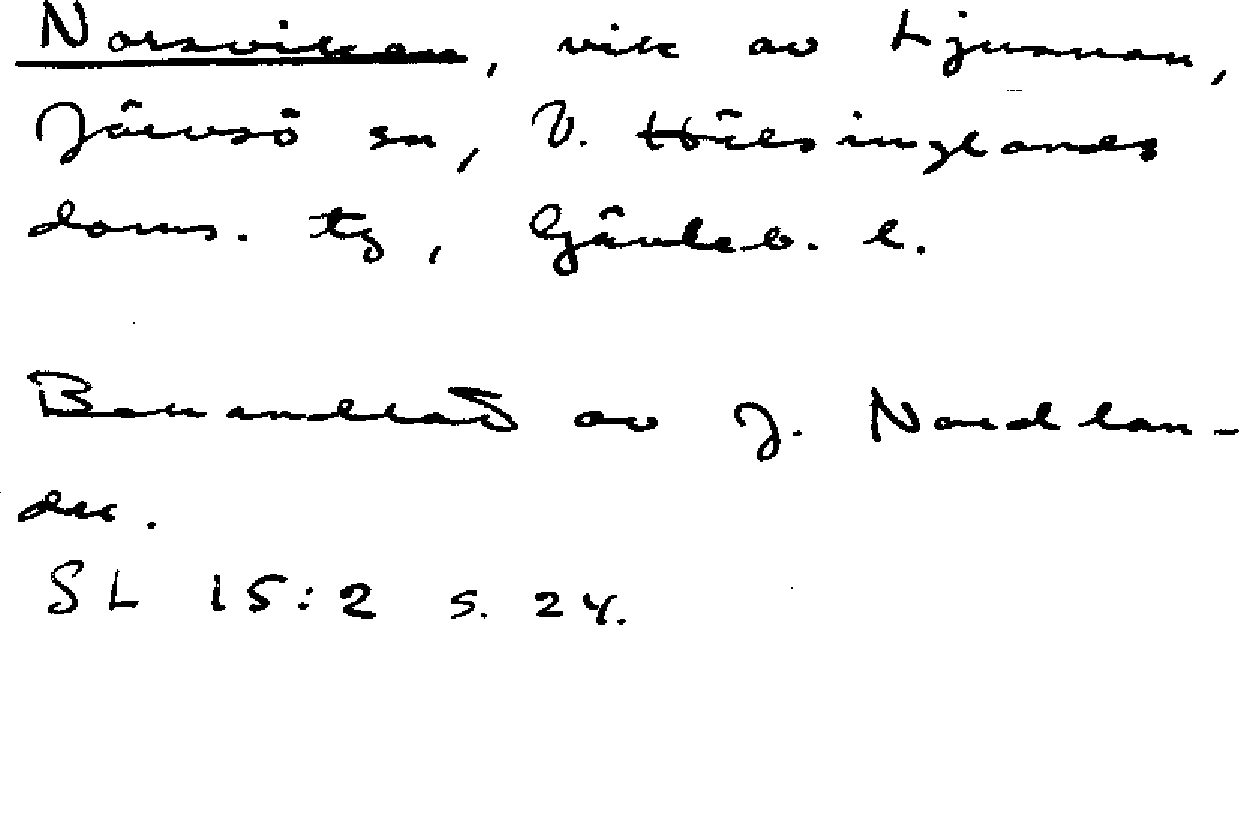 Norsvikan, vik av Ljusnan,
Järvsö sn, V. Hälsinglands
doms. tg, Gävleb. l.
Behandlad av J. Nordlan-
der.
SL 15:2 s. 24.